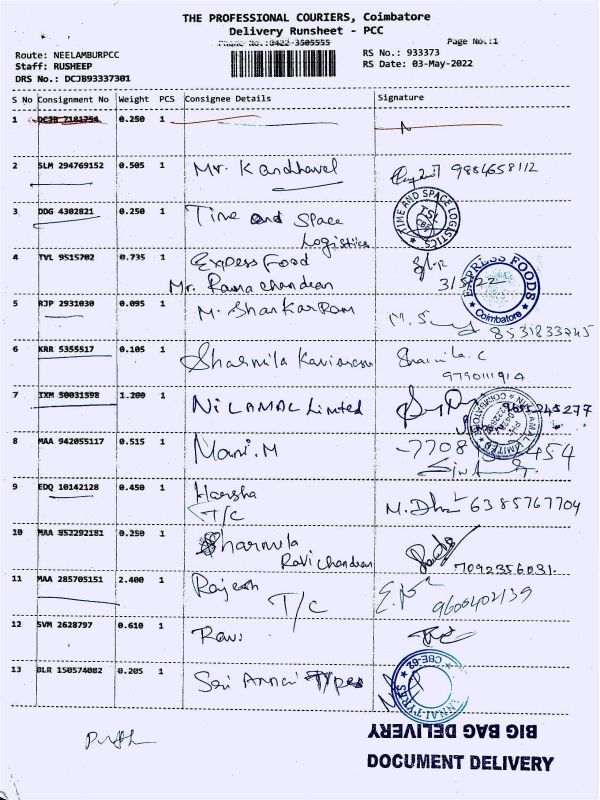 THE PROFESSIONAL COURIERS, Coimbatore
Delivery Runsheet - PCC
Phone No.:0422-3505555 Page No.:1
Route: NEELAMBURPCC RS No.: 933373
Staff: RUSHEEP RS Date: 03-May-2022
DRS No.: DCJB93337301
S No Consignment No Weight PCS Consignee Details Signature
1 DCJB 7181754 0.250 1
2 SLM 294769152 0.505 1 Mr. Kandhavel 9984658112
3 DDG 4302821 0.250 1 Time and Space
Logistics
TIME AND SPACE LOGISTICS
TSL
CBE
4 TVL 9515702 0.735 1 Express Food
Mr. Rama chandran 3/5/22
EXPRESS FOODS
Coimbatore
5 RJP 2931030 0.095 1 M. Shankar Ram
8531833745
6 KRR 5355517 0.105 1 Sharmila Sharmila. C
9790111914
7 IXM 50031598 1.200 1 NILAMAL Limited 9655245277
8 MAA 942055117 0.515 1 Mani. M 7708 454
9 EDQ 10142128 0.450 1 Harsha
T/C M. 6385767704
10 MAA 852292181 0.250 1 Sharmila
Ravi chandran 7092356031.
11 MAA 285705151 2.400 1 Rajesh
T/C 9600402139
12 SVM 2628797 0.610 1 Ravi
13 BLR 150574082 0.205 1 Sri Annai Types
ANNAI TYRES CBE-62
BIG BAG DELIVERY
DOCUMENT DELIVERY